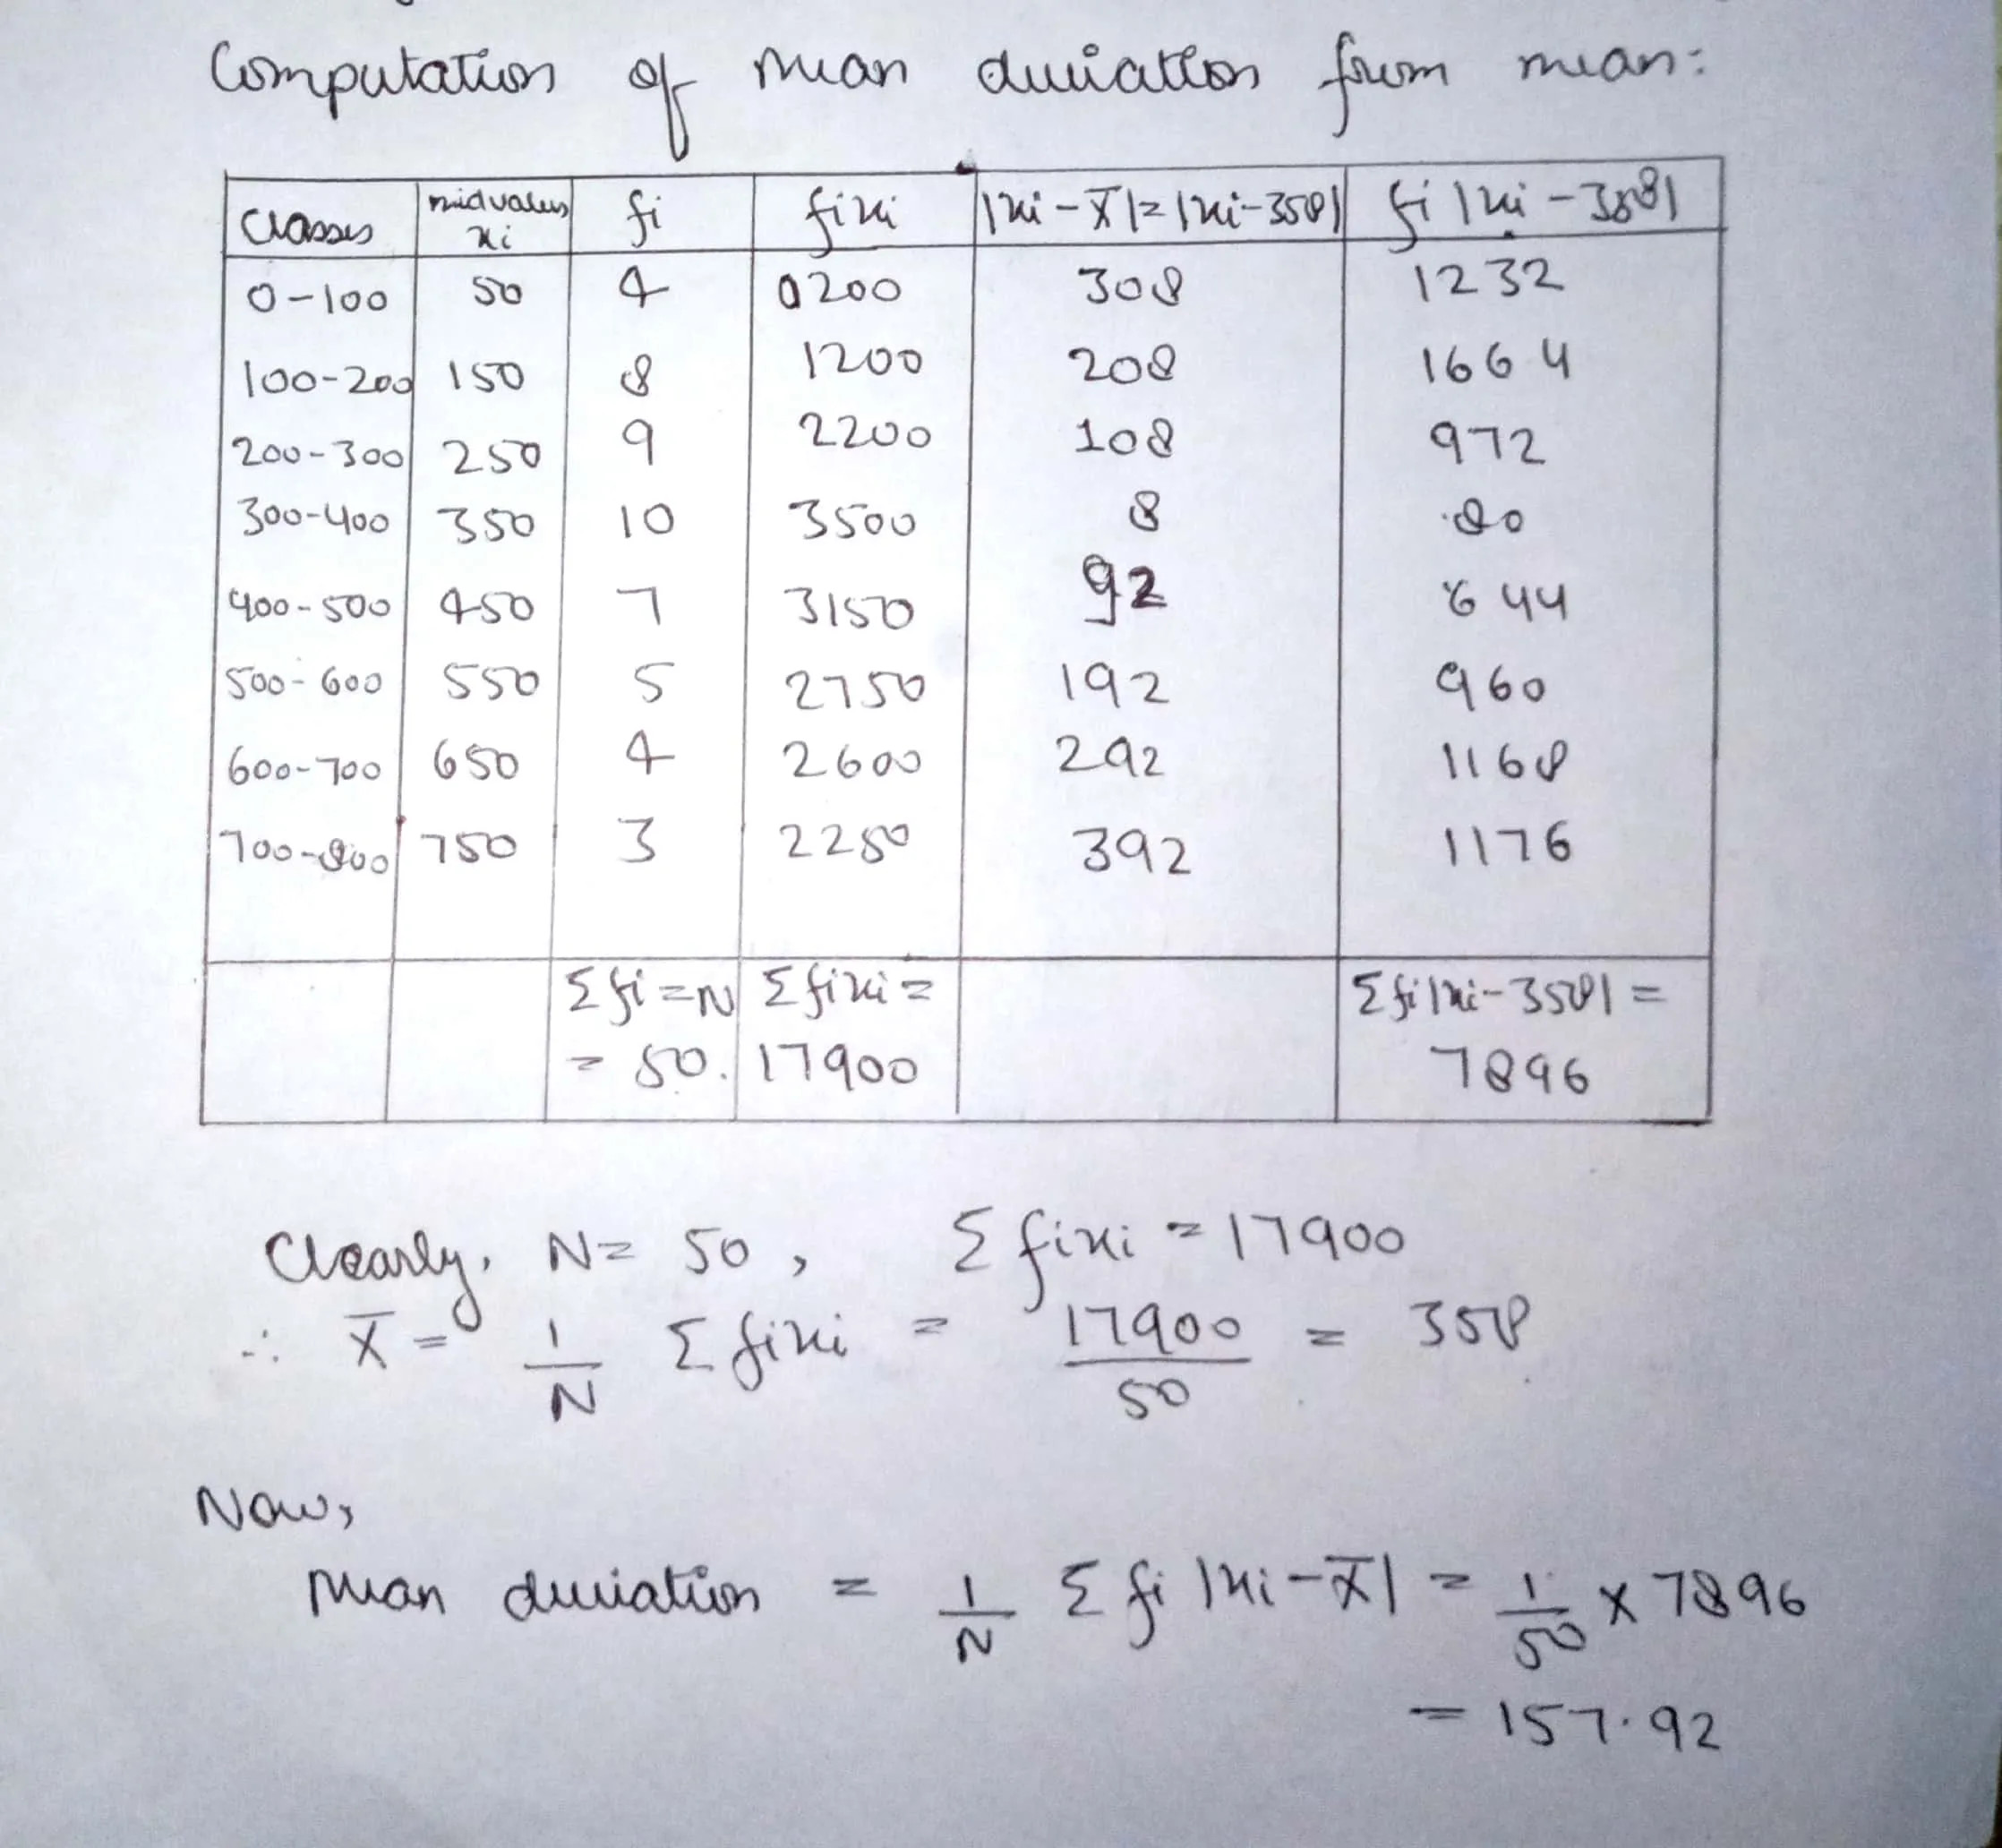 Computation of mean deviation from mean:
classes | midvalues xi | fi | fixi | |xi - X̄| = |xi - 358| | fi |xi - 358|
0-100 | 50 | 4 | 0200 | 308 | 1232
100-200 | 150 | 8 | 1200 | 208 | 1664
200-300 | 250 | 9 | 2200 | 108 | 972
300-400 | 350 | 10 | 3500 | 8 | 80
400-500 | 450 | 7 | 3150 | 92 | 644
500-600 | 550 | 5 | 2750 | 192 | 960
600-700 | 650 | 4 | 2600 | 292 | 1168
700-800 | 750 | 3 | 2250 | 392 | 1176
Σfi = N | Σfixi = | Σfi|xi - 358| =
= 50. | 17900 | 7896
Clearly, N = 50, Σfixi = 17900
∴ X̄ = 1/N Σfixi = 17900/50 = 358
Now,
Mean deviation = 1/N Σ fi |xi - X̄| = 1/50 × 7896
= 157.92